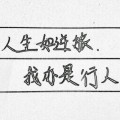 人生如逆旅.
我亦是行人